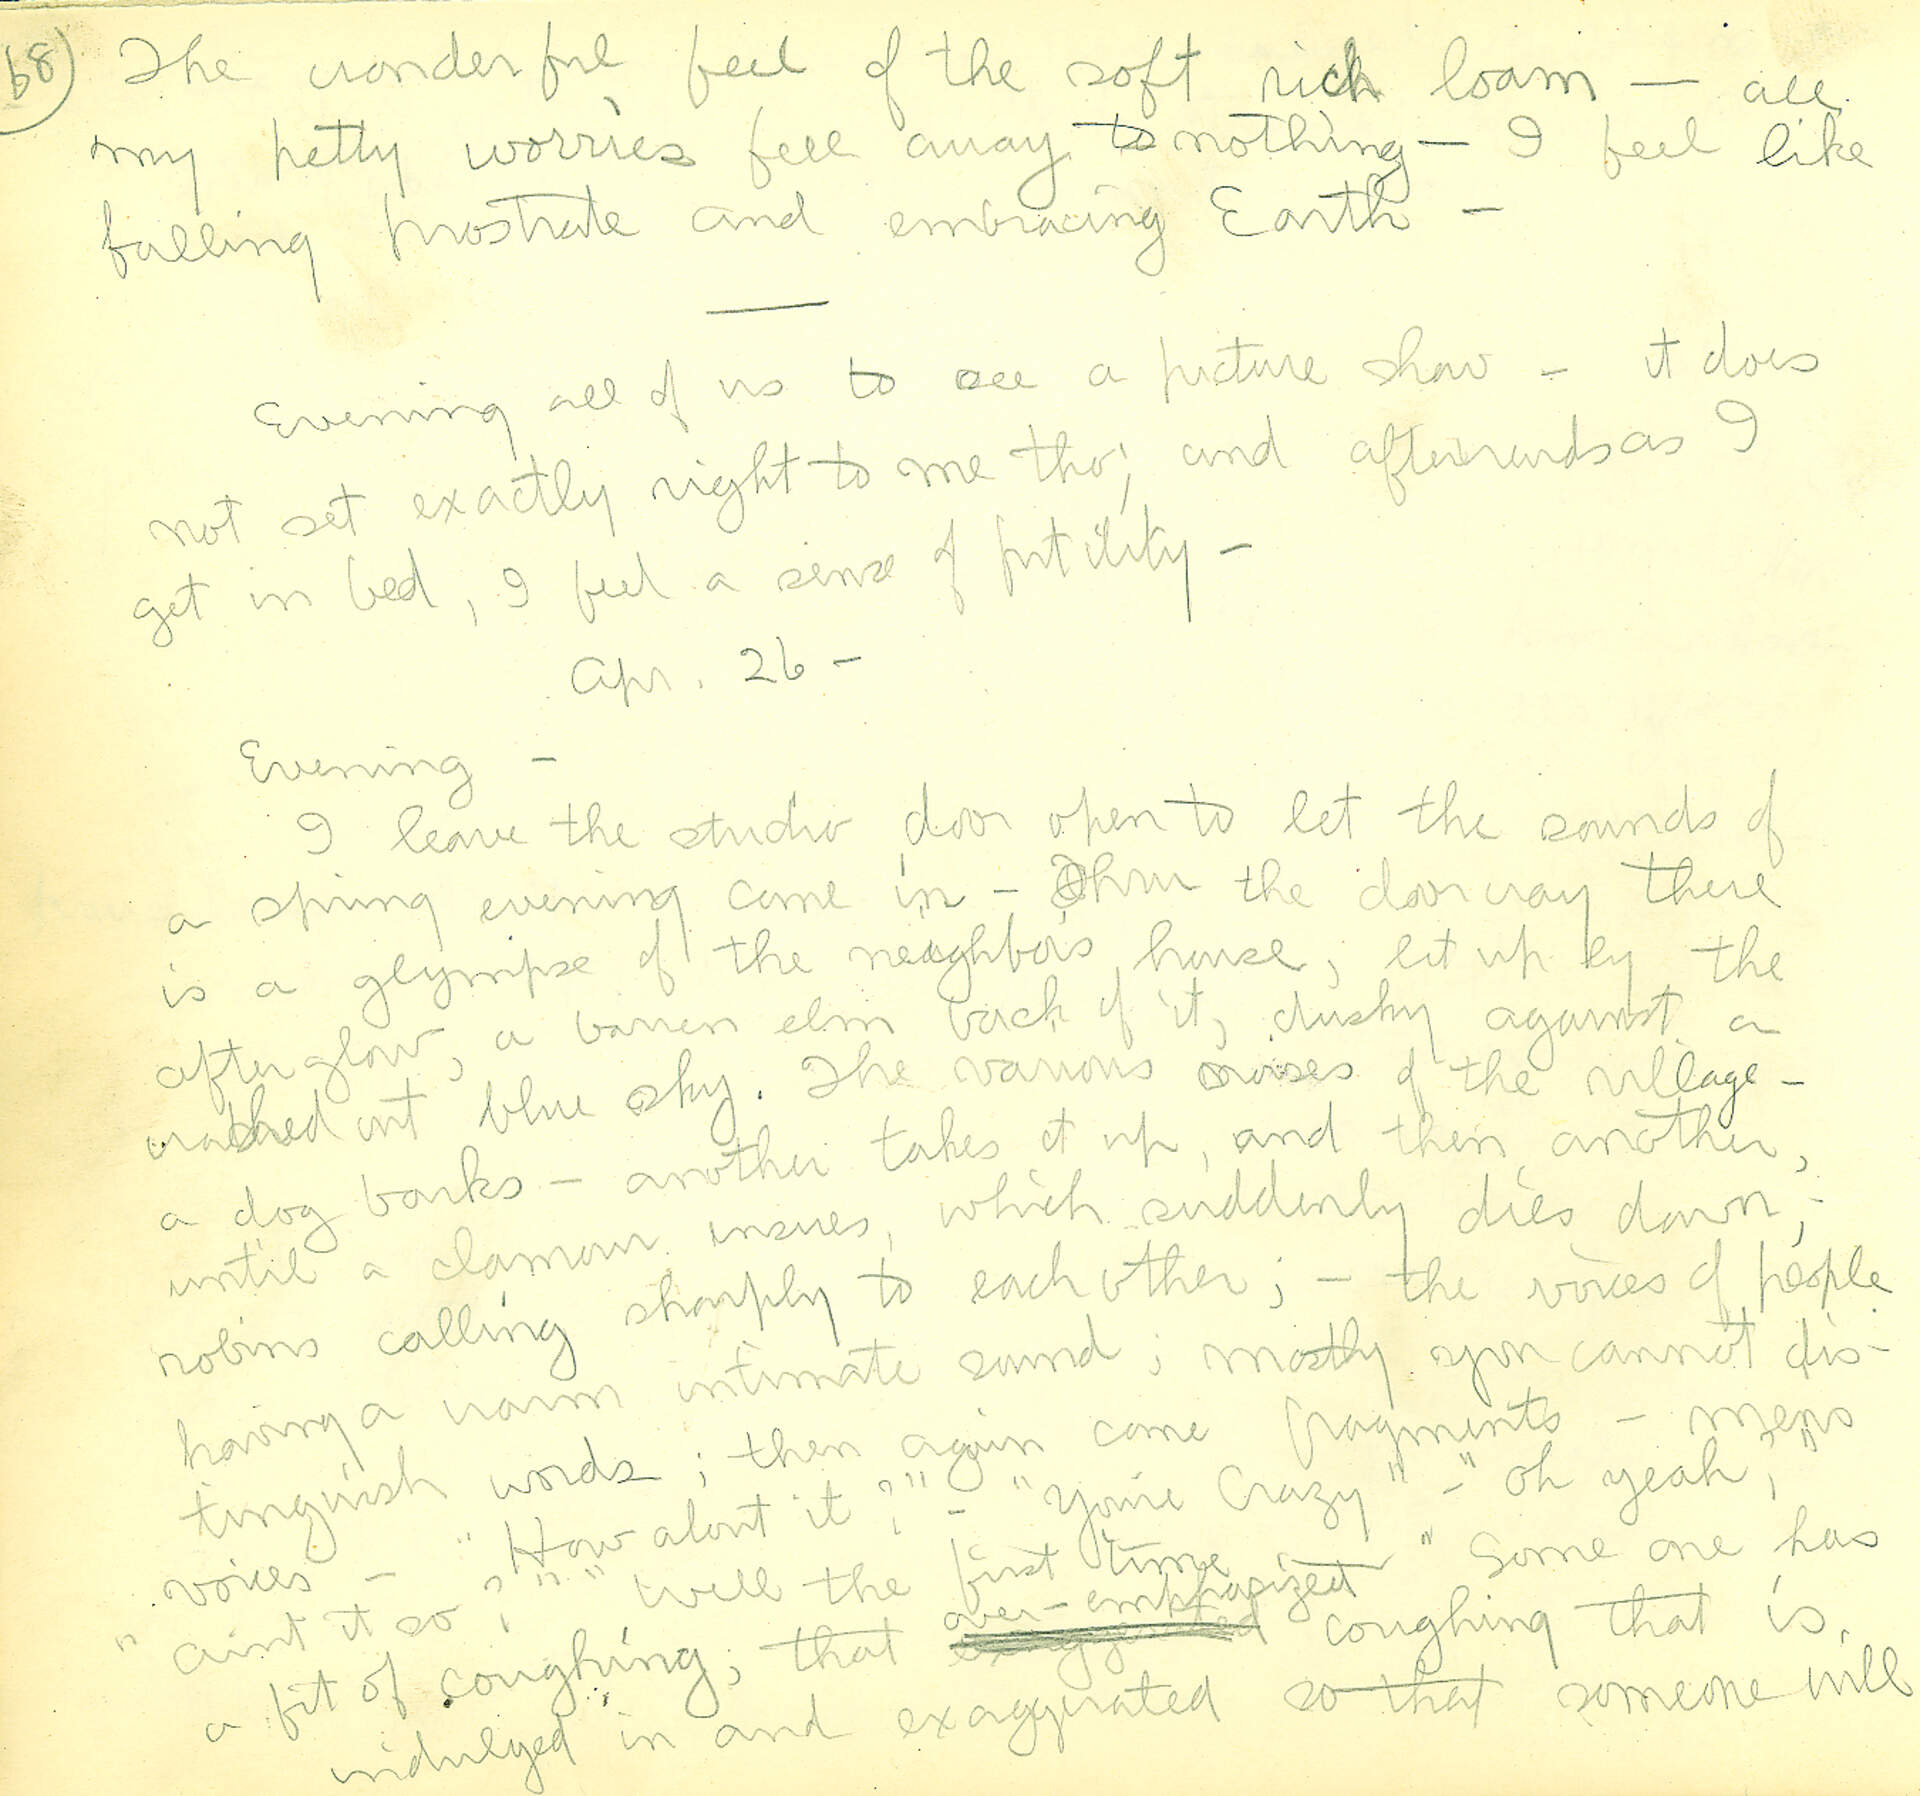 68)
The wonderful feel of the soft rich loam — all
my petty worries fell away to nothing — I feel like
falling prostrate and embracing Earth —
Evening all of us to see a picture show — it does
not set exactly right to me tho; and afterwards as I
get in bed, I feel a sense of futility —
Apr. 26 —
Evening —
I leave the studio door open to let the sounds of
a spring evening come in — Thru the doorway there
is a glympse of the neighbors house, lit up by the
afterglow, a barren elm back of it, dusky against a
washed out blue sky. The various noises of the village —
a dog barks — another takes it up, and then another,
until a clamour insues, which suddenly dies down; —
robins calling sharply to each other; — the voices of people
having a warm intimate sound; mostly you cannot dis-
tinguish words; then again come fragments — mens
voices — "How about it?" — "You're Crazy" — "oh yeah,"
"aint it so?" "Well the first time — " Some one has
a fit of coughing, that exaggerated over-emphasized coughing that is
indulged in and exaggerated so that someone will